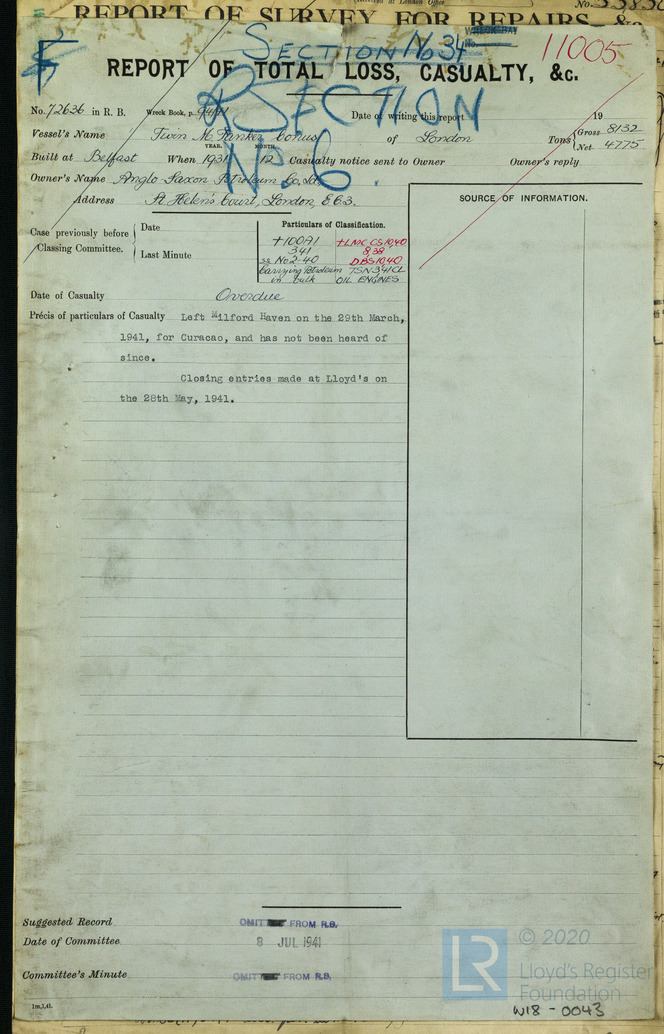 REPORT OF SURVEY FOR REPAIRS, &c
No.
SECTION No 34
11005
REPORT OF TOTAL LOSS, CASUALTY, &c.
SECTION
No 6.
No. 72636 in R. B. Wreck Book, p. Date of writing this report 19
Vessel's Name Twin M Tanker Conus of London Tons Gross 8132
Net 4775
YEAR. MONTH
Built at Belfast When 1931 12 Casualty notice sent to Owner Owner's reply
Owner's Name Anglo Saxon Petroleum Co. Ld.
Address St Helen's Court, London, E.C.3.
SOURCE OF INFORMATION.
Case previously before Classing Committee.
Date
Last Minute
Particulars of Classification.
+100A1 +LMC CS 10,40
341 8,38
ss No 2-40 DBS 10,40
Carrying Petroleum TSN 341 CL
in bulk OIL ENGINES
Date of Casualty Overdue
Précis of particulars of Casualty Left Milford Haven on the 29th March,
1941, for Curacao, and has not been heard of
since.
Closing entries made at Lloyd's on
the 28th May, 1941.
Suggested Record OMIT FROM R.B.
Date of Committee 8 JUL 1941
Committee's Minute OMIT FROM R.B.
1m,1,41.
LR
© 2020
Lloyd's Register
Foundation
W18-0043